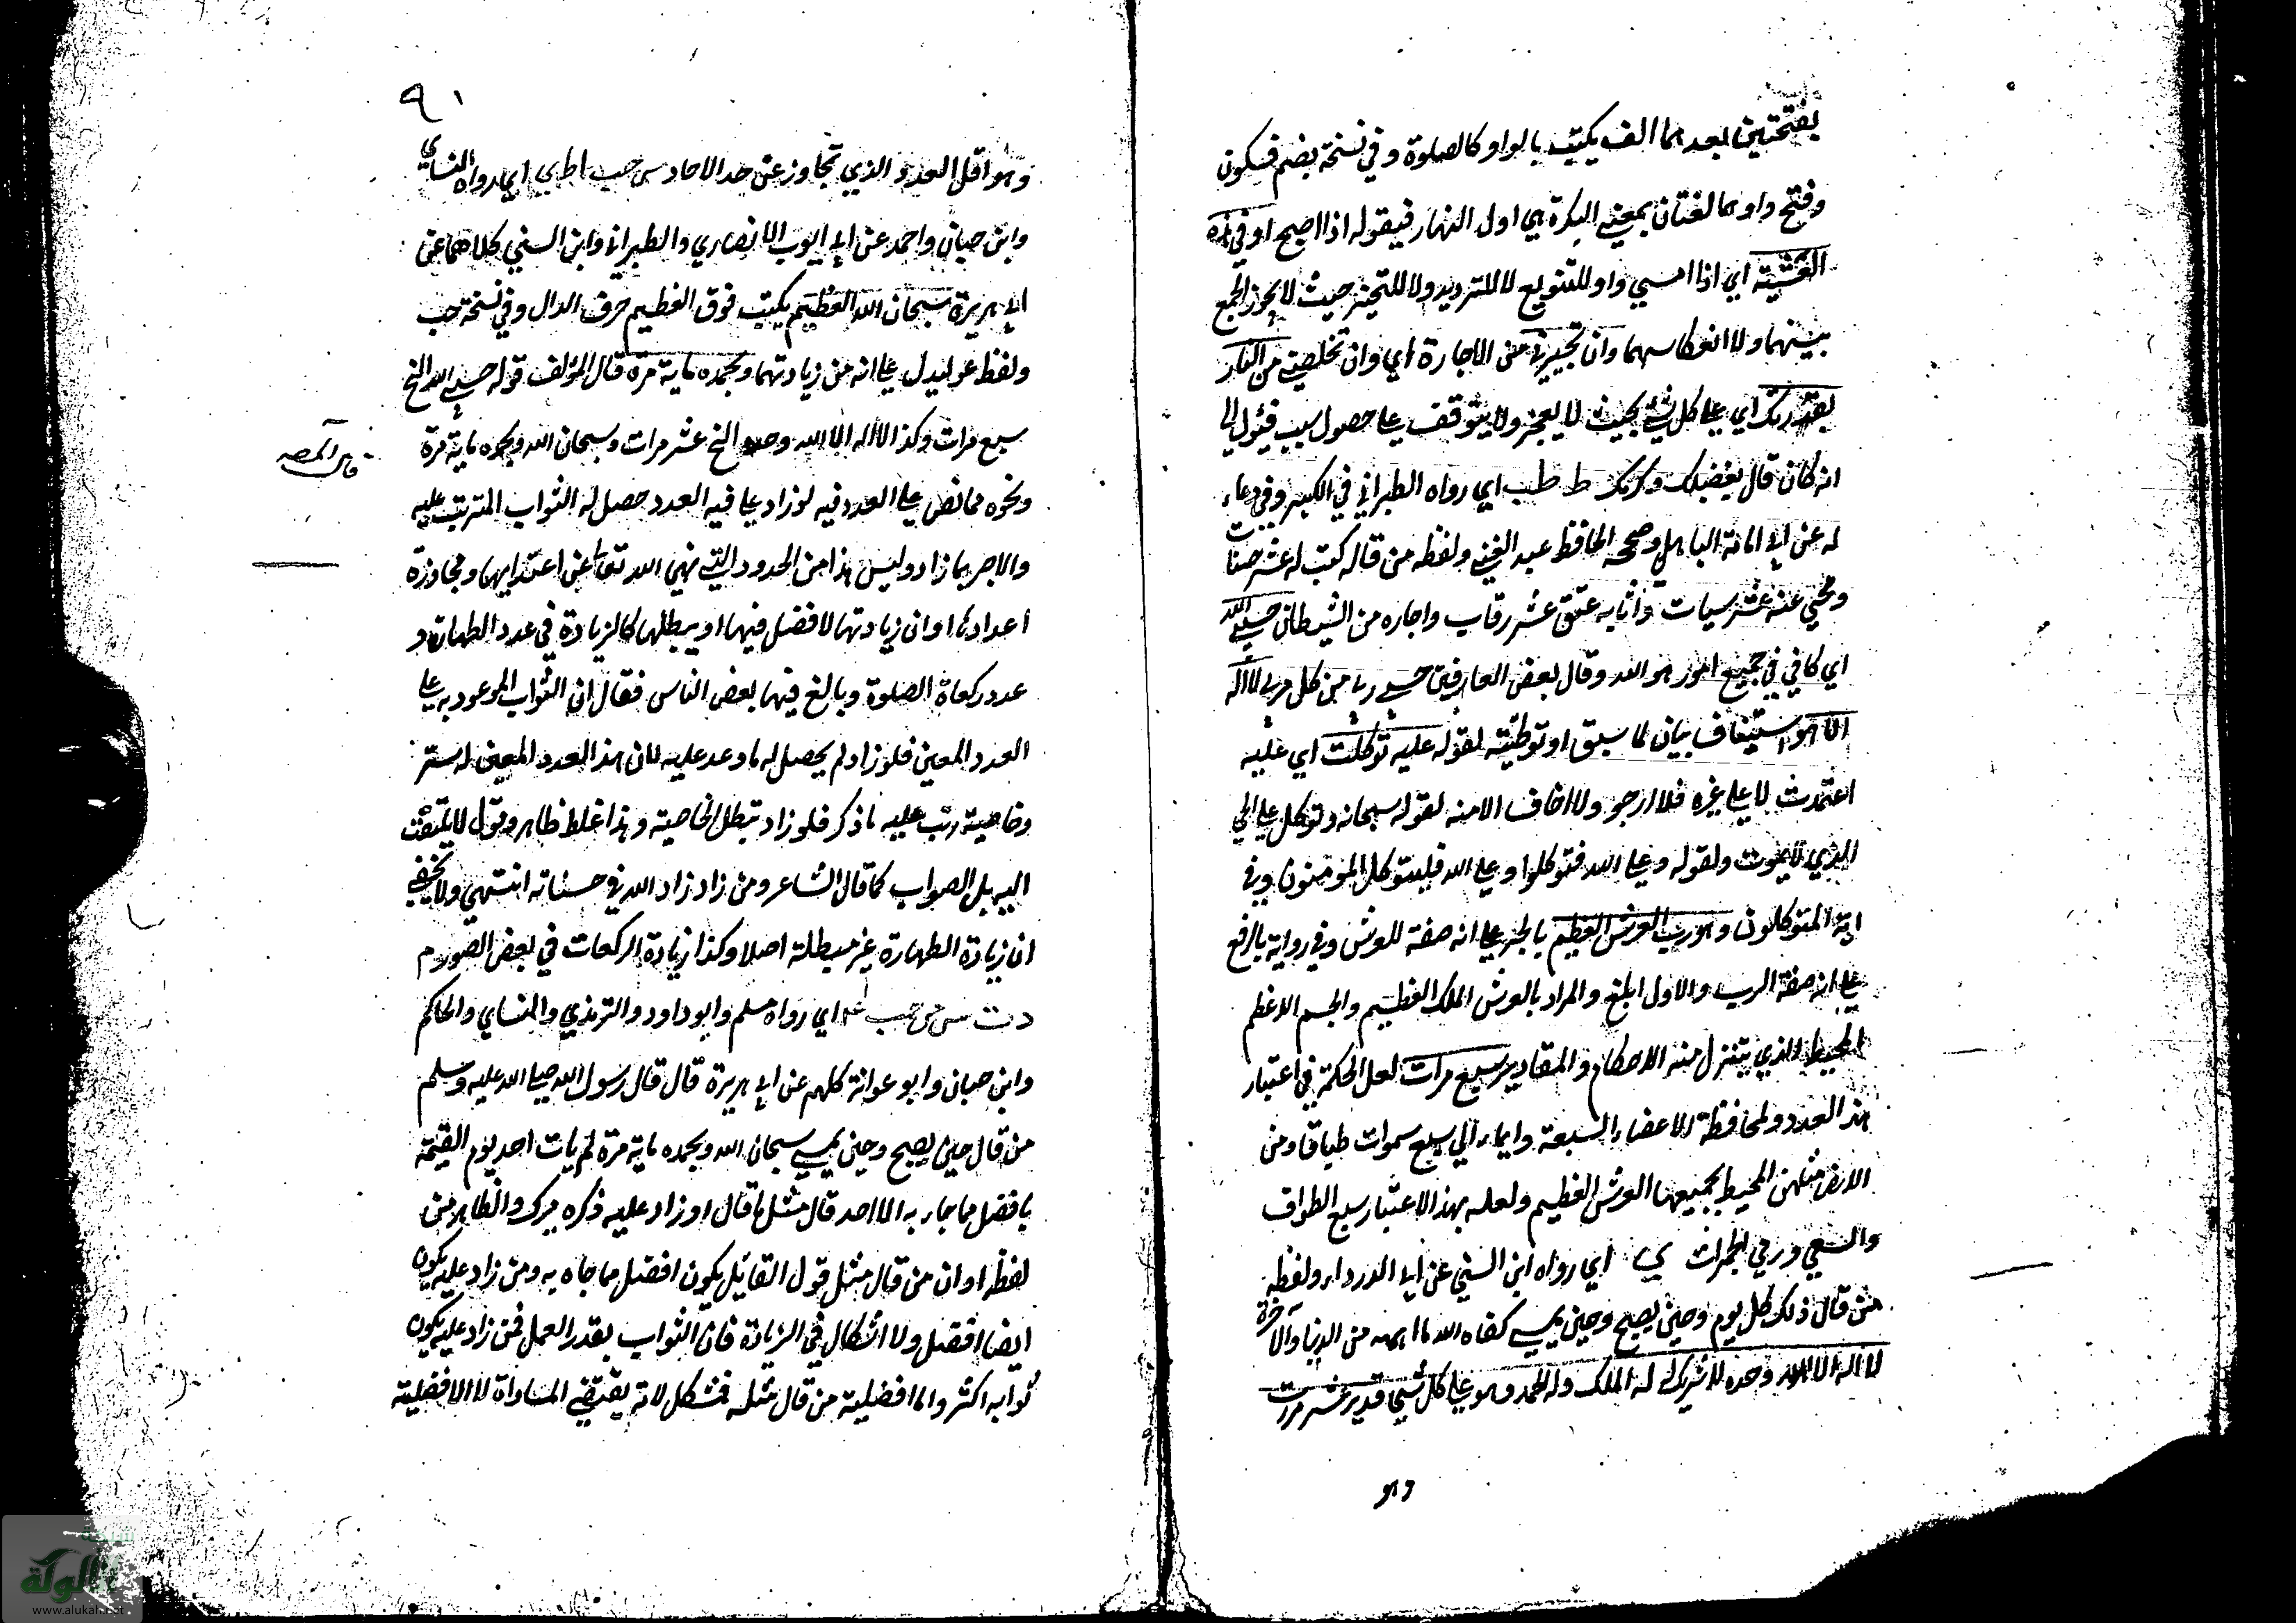 بفتحتين بعدهما الف يكتب بالواو كالصلوة وفي نسخة بضم فسكون
وفتح واو هما لغتان بمعنى البكرة هي اول النهار فيقوله اذا اصبح او في هذه
العشية اي اذا امسى واو للتنويع لا للترديد ولا للتخيير حيث لا يجوز الجمع
بينهما ولا انعكاسهما وان تجيرني من الاجارة اي وان تخلصني من النار
بقدرتك اي على كل شئ بحيث لا يعجز ولا يتوقف على حصول سبب فيئول الى
انه كان قال بفضلك وكرمك ط طب اي رواه الطبراني في الكبير وفي دعاء
له عن ابي امامة الباهلي وصححه الحافظ عبد الغني ولفظه من قاله كتب له عشر حسنات
ومحي عنه عشر سيات واثابه عتق عشر رقاب واجاره من الشيطان حسبي الله
اي كافي في جميع امور هو الله وقال بعض العارفين حسبي ربي من كل مربي لا اله
الا هو استيناف بيان لما سبق او توطئة لقوله عليه توكلت اي عليه
اعتمدت لا على غيره فلا ارجو ولا اخاف الا منه لقوله سبحانه وتوكل على الحي
الذي لا يموت ولقوله وعلى الله فتوكلوا وعلى الله فليتوكل المومنون وفي
اية المتوكلون وهو رب العرش العظيم بالجر على انه صفة للعرش وفي رواية بالرفع
على انه صفة الرب والاول ابلغ والمراد بالعرش الملك العظيم والجسم الاعظم
المحيط الذي يتنزل منه الاحكام والمقادير سبع مرات لعل الحكمة في اعتبار
هذا العدد ولمحافظة الاعضاء السبعة وايماء الى سبع سموات طباقا ومن
الارض مثلهن المحيط بجميعها العرش العظيم ولعله بهذا الاعتبار سبع الطواف
والسعي ورمي الجمرات ي اي رواه ابن السني عن ابي الدرداء ولفظه
من قال ذلك كل يوم وحين يصبح وحين يمسي كفاه الله ما اهمه من الدنيا والاخرة
لا اله الا الله وحده لا شريك له الملك وله الحمد وهو على كل شي قدير عشر مرات
وهو
٩١
وهو اقل العدد الذي تجاوز عن حد الاحاد س حب ا ط ي اي رواه النساي
وابن حبان واحمد عن ابي ايوب الانصاري والطبراني وابن السني كلاهما عن
ابي هريرة سبحان الله العظيم يكتب فوق العظيم حرف الدال وفي نسخة حب
ولفظ عو ليدل على انه من زيادتهما وبحمده ماية مرة قال المؤلف قوله حسبي الله الخ
سبع مرات وكذا لا اله الا الله وحده الخ عشر مرات وسبحان الله وبحمده ماية مرة
ونحوه مما نص على العدد فيه لو زاد على فيه العدد حصل له الثواب المترتب عليه
والاجر بما زاد وليس هذا من الحدود التي نهى الله تعالى عن اعتدايها ومجاوزة
اعدادها وان زيادتها لا فضل فيها او يبطلها كالزيادة في عدد الطهارة و
عدد ركعاة الصلوة وبالغ فيها بعض الناس فقال ان الثواب الموعود به على
العدد المعين فلو زاد لم يحصل له ما وعد عليه لان هذا العدد المعين له ستر
وخاصية رتب عليه ما ذكر فلو زاد تبطل الخاصية وهذا غلط ظاهر وقول لا يلتفت
اليه بل الصواب كما قال الشاعر ومن زاد زاد الله في حسناته انتهى ولا يخفى
ان زيادة الطهارة غير مبطلة اصلا وكذا زيادة الركعات في بعض الصور م
د ت س مس حب عو اي رواه مسلم وابو داود والترمذي والنساي والحاكم
وابن حبان وابو عوانة كلهم عن ابي هريرة قال قال رسول الله صلى الله عليه وسلم
من قال حين يصبح وحين يمسي سبحان الله وبحمده ماية مرة لم يات احد يوم القيمة
بافضل مما جاء به الا احد قال مثل ما قال او زاد عليه ذكره ميرك والظاهر من
لفظه او ان من قال مثل قول القايل يكون افضل مما جاه به ومن زاد عليه يكون
ايضا افضل ولا اشكال في الزيادة فان الثواب بقدر العمل فمن زاد عليه يكون
ثوابه اكثر واما افضلية من قال مثله فمشكل لانه يقتضي المساواة لا الافضلية
شبكة
الألوكة
www.alukah.net